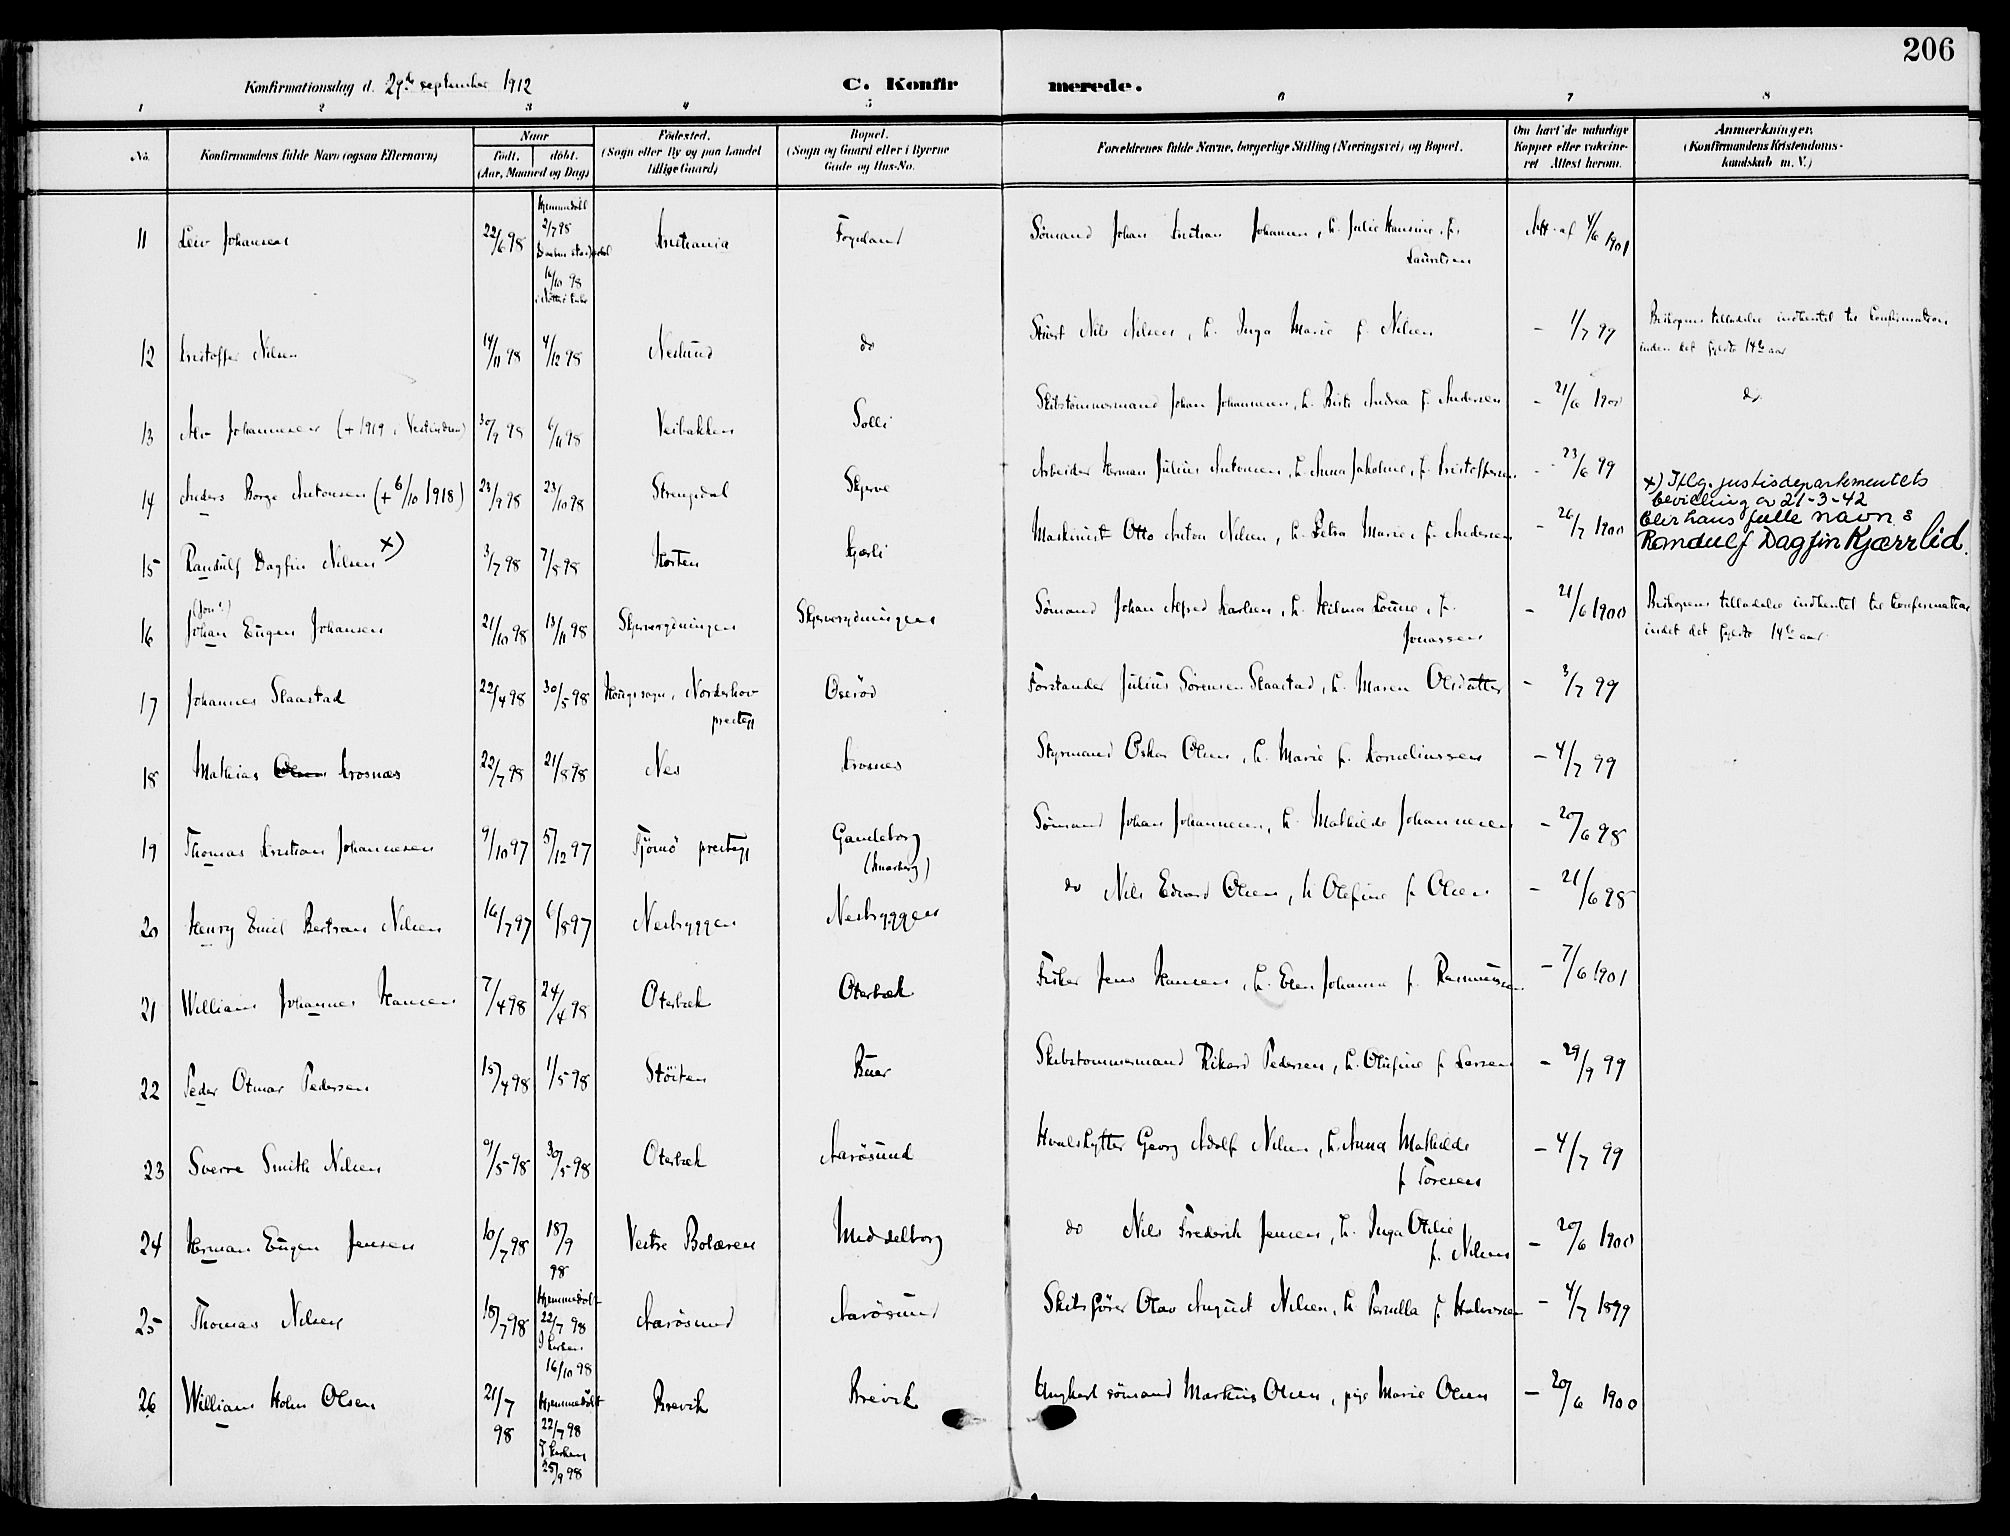 206
Konfirmationsdag d. 29de september 1912
C. Konfirmerede.
1 2 3 4 5 6 7 8
No.
Konfirmandens fulde Navn (ogsaa Efternavn)
Naar
født. døbt.
(Aar, Maaned og Dag)
Fødested.
(Sogn eller By og paa Landet
tillige Gaard)
Bopæl.
(Sogn og Gaard eller i Byerne
Gade og Hus-No.
Forældrenes fulde Navne, borgerlige Stilling (Næringsvei) og Bopæl.
Om havt de naturlige
Kopper eller vakcineret
Attest herom.
Anmerkninger.
(Konfirmandens Kristendomskundskab
m. V.)
11 Leiv Johansen 22/6 98 Hjemmedøbt 2/7 98 16/10 98 Kristiania Føynland Sømand Johan Kristian Johansen, h. Julie Hansine f. Lauritsen Att. af 4/6 1901
12 Kristoffer Nilsen 14/11 98 4/12 98 Neslund do Stuert Nils Nilsen, h. Inga Marie f. Nilsen - 1/7 99 Biskopens tilladelse indhentet til Confirmation
inden det fyldte 14de aar
13 Alv Johannesen (+ 1919 i Vestindien) 30/9 98 6/11 98 Veibakken Solli Skibstømmermand Johan Johannesen, h. Berte Andrea f. Andersen - 21/6 1900 do
14 Anders Borge Antonsen (+ 6/10 1918) 23/9 98 23/10 98 Strengsdal Skjerve Arbeider Herman Julius Antonsen, h. Anna Jakobine, f. Kristoffersen - 23/6 99
15 Randulf Dagfin Nilsen x) 3/7 98 7/8 98 Horten Kjærli Maskinist Otto Anton Nilsen, h. Petra Marie f. Andersen - 26/7 1900 x) Iflg. justisdepartementets
bevilling av 21-3-42
blir hans fulle navn:
Randulf Dagfin Kjærrlid.
16 Johan Eugen Johansen 21/10 98 13/11 98 Skjerverydningen Skjerverydningen Sømand Johan Alfred Karlsen, h. Hilma Lovise, f. Jonassen - 21/6 1900 Biskopens tilladelse indhentet til Confirmation
indet det fyldte 14de aar.
17 Johannes Slaastad 22/4 98 30/5 98 Haugs sogn, Norderhov prestegj Oserød Forstander Julius Sørensen Slaastad, h. Maren Olsdatter - 3/7 99
18 Mathias Olsen Krosnæs 22/7 98 21/8 98 Nes Krosnes Styrmand Oskar Olsen, h. Marie f. Korneliussen - 4/7 99
19 Thomas Kristian Johannesen 9/10 97 5/12 97 Tjømø prestegj Gamleborg (Knarberg) Sømand Johan Johannesen, h. Mathilde Johannesen - 20/6 98
20 Henry Emil Bertran Nilsen 16/7 97 6/8 97 Nesbryggen Nesbryggen do Nils Edvard Olsen, h. Olefine f. Olsen - 21/6 98
21 William Johannes Hansen 7/4 98 24/4 98 Oterbæk Oterbæk Fisker Jens Hansen, h. Elen Johanna f. Rasmussen - 7/6 1901
22 Peder Otmar Pedersen 15/4 98 1/5 98 Støiten Buer Skibstømmermand Rikard Pedersen, h. Olufine f. Larsen - 29/9 99
23 Sverre Smith Nilsen 9/5 98 30/5 98 Oterbæk Aarøsund Hvalskytter Georg Adolf Nilsen, h. Anna Mathilde f. Toresen - 4/7 99
24 Herman Eugen Jensen 10/7 98 18/9 98 Vestre Bolæren Meddelborg do Nils Frederik Jensen, h. Inga Otilie f. Nilsen - 20/6 1900
25 Thomas Nilsen 18/7 98 Hjemmedøbt 22/7 98 I kirken 16/10 98 Aarøsund Aarøsund Skibsfører Olav August Nilsen, h. Pernella f. Halvorsen - 4/7 1899
26 William Holm Olsen 21/7 98 Hjemmedøbt 22/7 98 I kirken 25/9 98 Brevik Brevik Ungkarl sømand Markus Olsen, pige Marie Olsen - 20/6 1900